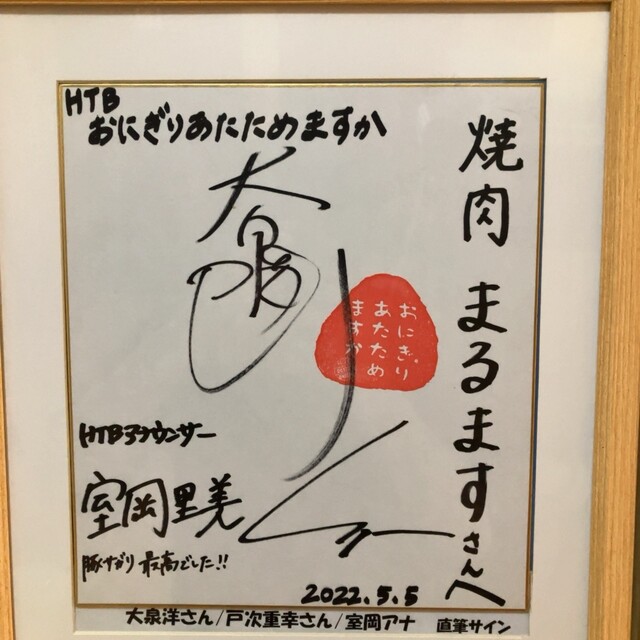 HTB
おにぎりあたためますか
焼肉 まるますさんへ
大泉
おにぎり
あたため
ますか
HTBアナウンサー
室岡里美
豚サガリ 最高でした!!
2022.5.5
大泉洋さん/戸次重幸さん/室岡アナ 直筆サイン